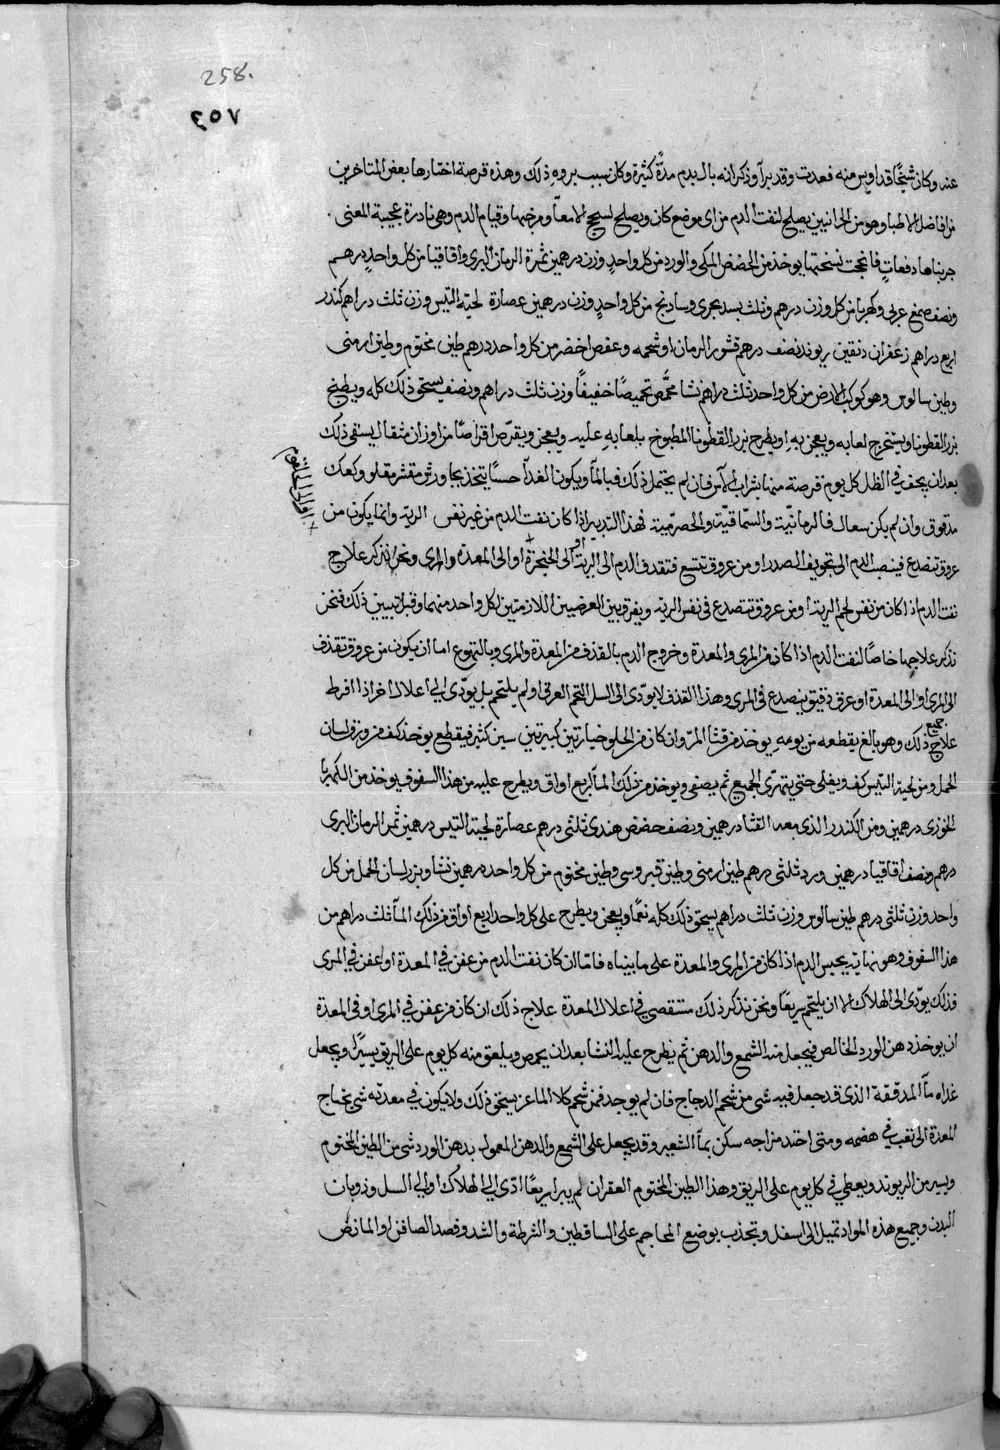 258.
٢٥٧
عنه وكان شيخًا قد اويس منه فعدت وقد برآ وذكر انه بال بدم مدّةً كثيرة وكان سبب بروه ذلك وهذه قرصة اختارها بعض المتاخرين
من افاضل الاطبا وهو من الحرانيين يصلح لنفث الدم من اى موضع كان ويصلح لسحج الامعآ وقيام الدم وهى نادرة عجيبة المعنى .
جربناها دفعاتٍ فانجحت نسختها يوخذ من الحضض المكى والورد من كل واحدٍ وزن درهمين ثمرة الرمان البرى واقاقيا من كل واحدٍ درهم
ونصف صمغ عربى وكهربا من كل وزن درهم وثلث بسد بحرى وسادنج من كل واحدٍ وزن درهمين عصارة لحية التيس وزن ثلث دراهم كندر
اربع دراهم زعفران دنقين ريوند نصف درهم قشور الرمان او شحمه وعفص اخضر من كل واحد درهم طين مختوم وطين ارمنى
وطين سالوس وهو كوكب الارض من كل واحد ثلث دراهم نشا محمَّص تحميصًا خفيفًا وزن ثلث دراهم ونصف يسحق ذلك كله ويطبخ
بزر القطونا ويستخرج لعابه ويعجن به او يطرح بزر القطونا المطبوخ بلعابه عليه ويعجن ويقرّص اقراصًا من اوزان مثقال يسقى ذلك
بعد ان يجف فى الظل كل يوم قرصة منها بشراب الآس فان لم يحتمل ذلك فبالمآ ويكون الغدآ حسًا يتخذ بجاورش مقشر مقلو وكعك
مدقوق وان لم يكن سعال فالرمانيّة والسمّاقيّة والحصرميّة لهذا التدبير اذا كان نفث الدم من غير نفس الريه وانما يكون من
عروق تنصدع فينصب الدم الى تجويف الصدر او من عروق تتسع فتقذف الدم الى الرية او الى الحنجرة او الى المعدة والمرى ونحن نذكر علاج
نفث الدم اذا كان من نفس لحم الرية او من عروق تتصدع فى نفس الرية ويفرق بين العرضيين اللازمتين لكل واحد منهما وقبل تبيين ذلك فنحن
نذكر علاجها خاصًا لنفث الدم اذا كان من المرى والمعدة وخروج الدم بالقذف من المعدة والمرى وبالتهوع اما ان يكون من عروق تقذف
الى المرى او الى المعدة او عرق دقيق ينصدع فى المرى وهذا القذف لا يودى الى السل التحم العرق او لم يلتحم بل يودى الى اعلال اخر اذا افرط
جميع
علاج ذلك وهو بالغ يقطعه من يومه يوخذ من قثا المرّ وان كان من الحلو خيارتين كبيرتين سين كثير فيقطع يوخذ كف من ورق لسان
الحمل ومن لحية التيس كف ويغلى حتى يتهرى الجميع ثم يصفى ويوخذ من ذلك المآ اربع اواق ويطرح عليه من هذا السفوف يوخذ من الكهربا
الخوزى درهمين ومن الكندر الذى بعد القثا درهمين ونصف حضض هندى ثلثى درهم عصارة لحية التيس درهمين ثمر الرمان البرى
درهم ونصف اقاقيا درهمين ورد ثلثى درهم طين ارمنى وطين قبروسى وطين مختوم من كل واحد درهمين نشا وبزر لسان الحمل من كل
واحد وزن ثلثى درهم طين سالوس وزن ثلث دراهم يسحق ذلك كله نعمًا ويعجن ويطرح على كل واحد اربع اواق من ذلك المآ ثلث دراهم من
هذا السفوف وهو نهاية يحبس الدم اذا كان من المرى والمعدة على ما بيناه فامّا ان كان نفث الدم من عفن فى المعدة او عفن فى المرى
فذلك يودى الى الهلاك الا ان يلتحم سريعًا ونحن نذكر ذلك مستقصى فى اعلال المعدة علاج ذلك ان كان من عفن فى المرى او فى المعدة
ان يوخذ دهن الورد الخالص فيجعل منه الشمع والدهن ثم يطرح عليه النشا بعد ان يحمص ويلعق منه كل يوم على الريق يسيرًا ويجعل
غذاه مآ المدققة الذى قد جعل فيه شى من شحم الدجاج فان لم يوجد فمن شحم كلا الماعز يسحق ذلك ولا يكون فى معدته شى تحتاج
المعدة الى تعب فى هضمه ومتى احتد مزاجه سكن بمآ الشعير وقد يجعل على الشمع والدهن المعمول بدهن الورد شى من الطين المختوم
ويسير من الريوند ويعطى فى كل يوم على الريق وهذا الطين المختوم العقران لم يبرا سريعًا ادّى الى الهلاك او الى السل وذوبان
البدن وجميع هذه المواد تميل الى اسفل وتجذب بوضع المحاجم على الساقطين والشرطة والشد وفصد الصافن او المانض